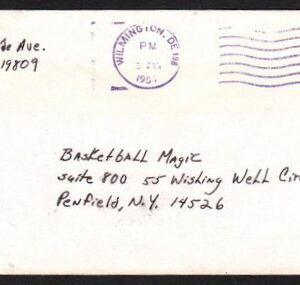 de Ave.
19809
WILMINGTON, DE 198
PM
198
Basketball Magic
suite 800 55 Wishing Well Cir
Penfield, N.Y. 14526